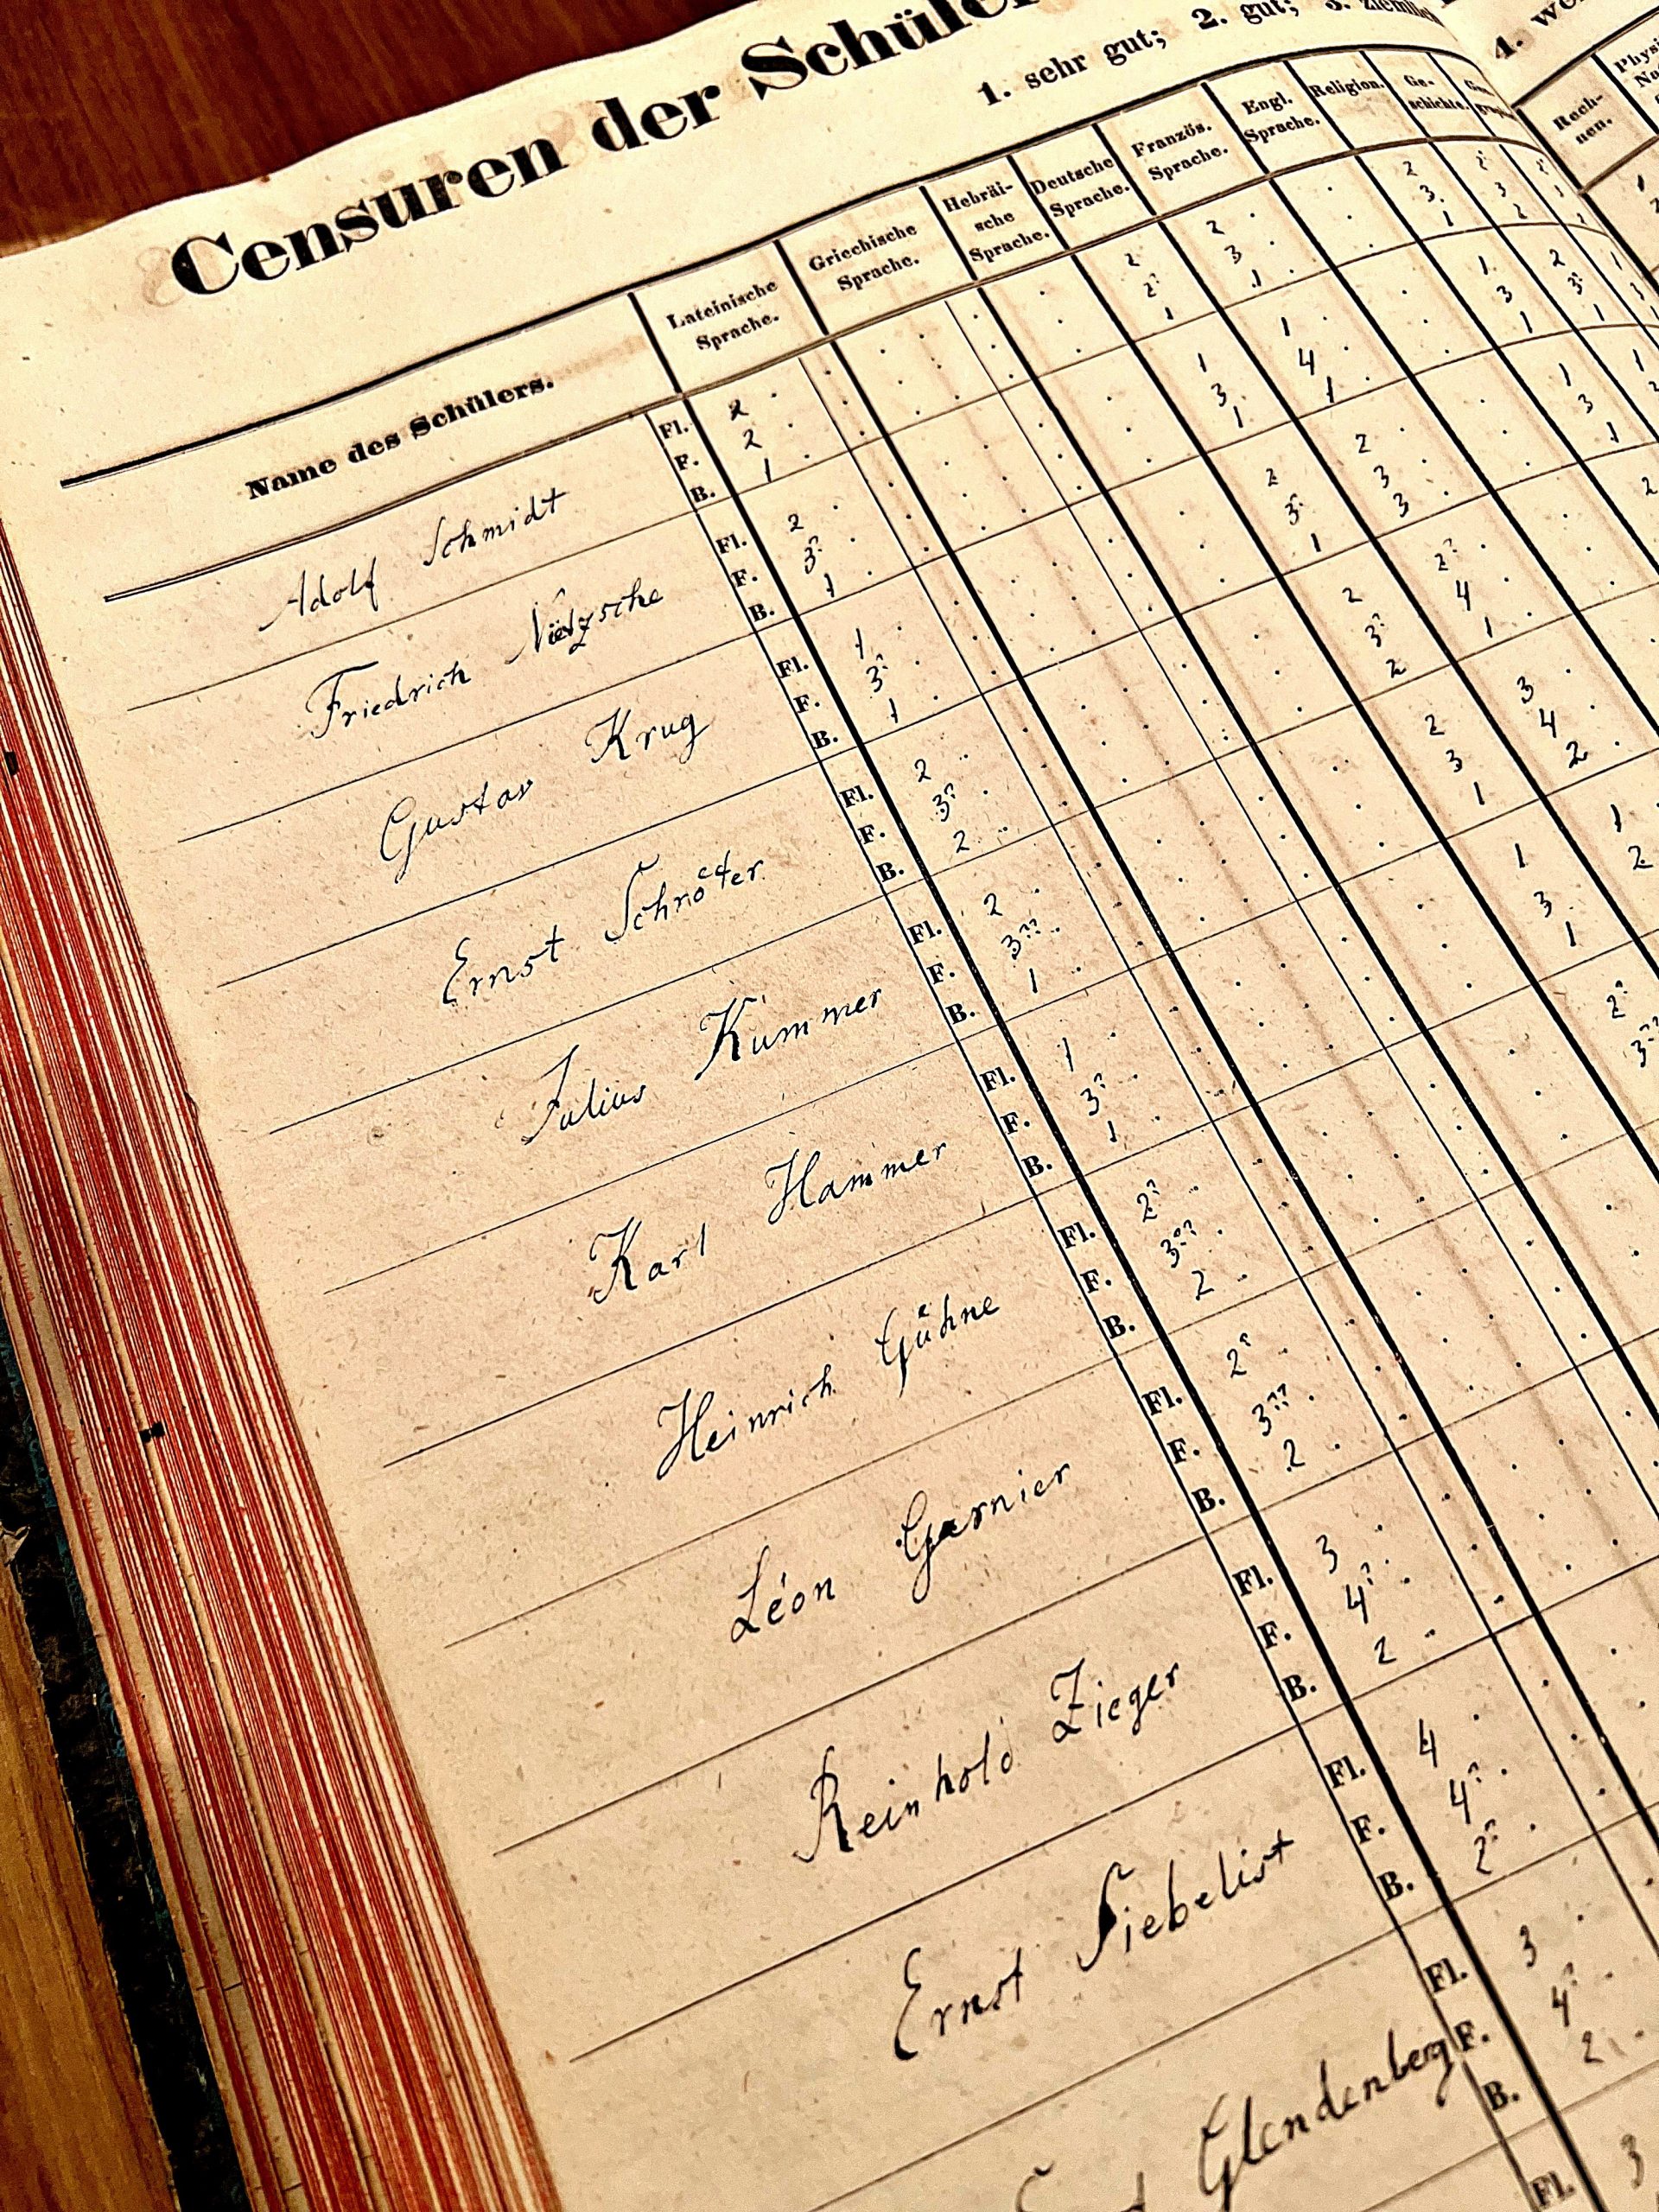 Censuren der Schüler
1. sehr gut; 2. gut; 3. ziemlich
4.
Name des Schülers.
Lateinische Sprache.
Griechische Sprache.
Hebräi-sche Sprache.
Deutsche Sprache.
Französ. Sprache.
Engl. Sprache.
Religion.
Ge-schichte.
Rech-nen.
Adolf Schmidt
Fl. 2 . 2 2 2
F. 2 . 2? 3 3
B. 1 1 1 1
Friedrich Nietzsche
Fl. 2 . 1 1 1
F. 3? . 3 4 3
B. 1 . 1 1 1
Gustav Krug
Fl. 1 . 2 2
F. 3? . 3? 3
B. 1 . 1 3
Ernst Schröter
Fl. 2 . 2 2?
F. 3? . 3? 4
B. 2 . 2 1
Julius Kummer
Fl. 2 . 2 3
F. 3?? . 3 4
B. 1 . 1 2
Karl Hammer
Fl. 1 . 1 1
F. 3? . 3 2
B. 1 . 1
Heinrich Gühne
Fl. 2? . 2?
F. 3?? . 3??
B. 2 .
Léon Garnier
Fl. 2? .
F. 3?? .
B. 2 .
Reinhold Zieger
Fl. 3 .
F. 4? .
B. 2 .
Ernst Siebelist
Fl. 4 .
F. 4? .
B. 2? .
Glendenberg
Fl. 3 .
F. 4? .
B. 2 .
Fl. 3